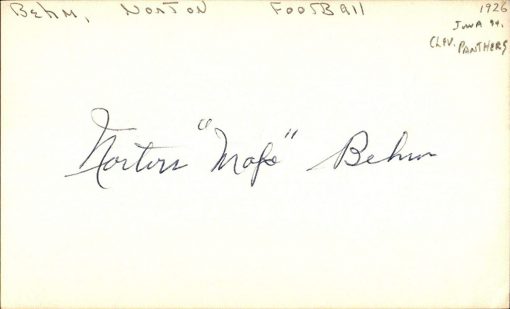 Behm, Norton Football 1926
Iowa St.
Clev. Panthers
Norton "Mose" Behm